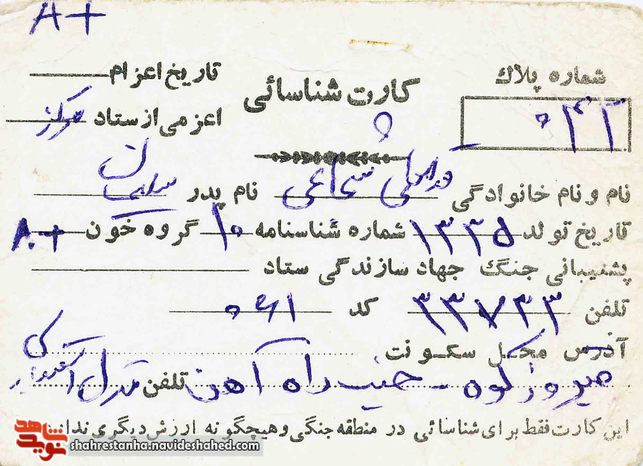 A+
شماره پلاك
کارت شناسائی
تاریخ اعزام
۰۴۲
اعزامی از ستاد مرکز
نام و نام خانوادگی شجاعی نام پدر سلیمان
تاریخ تولد ۱۳۳۵ شماره شناسنامه ۱۰ گروه خون A+
پشتیبانی جنگ جهاد سازندگی ستاد
تلفن ۳۳۷۲۳ کد ۰۶۱
آدرس محل سکونت
فیروزکوه - جنب راه آهن تلفن منزل
این کارت فقط برای شناسائی در منطقه جنگی و هیچگونه ارزش دیگری ندارد
نوید شاهد
shahrestanha.navideshahed.com